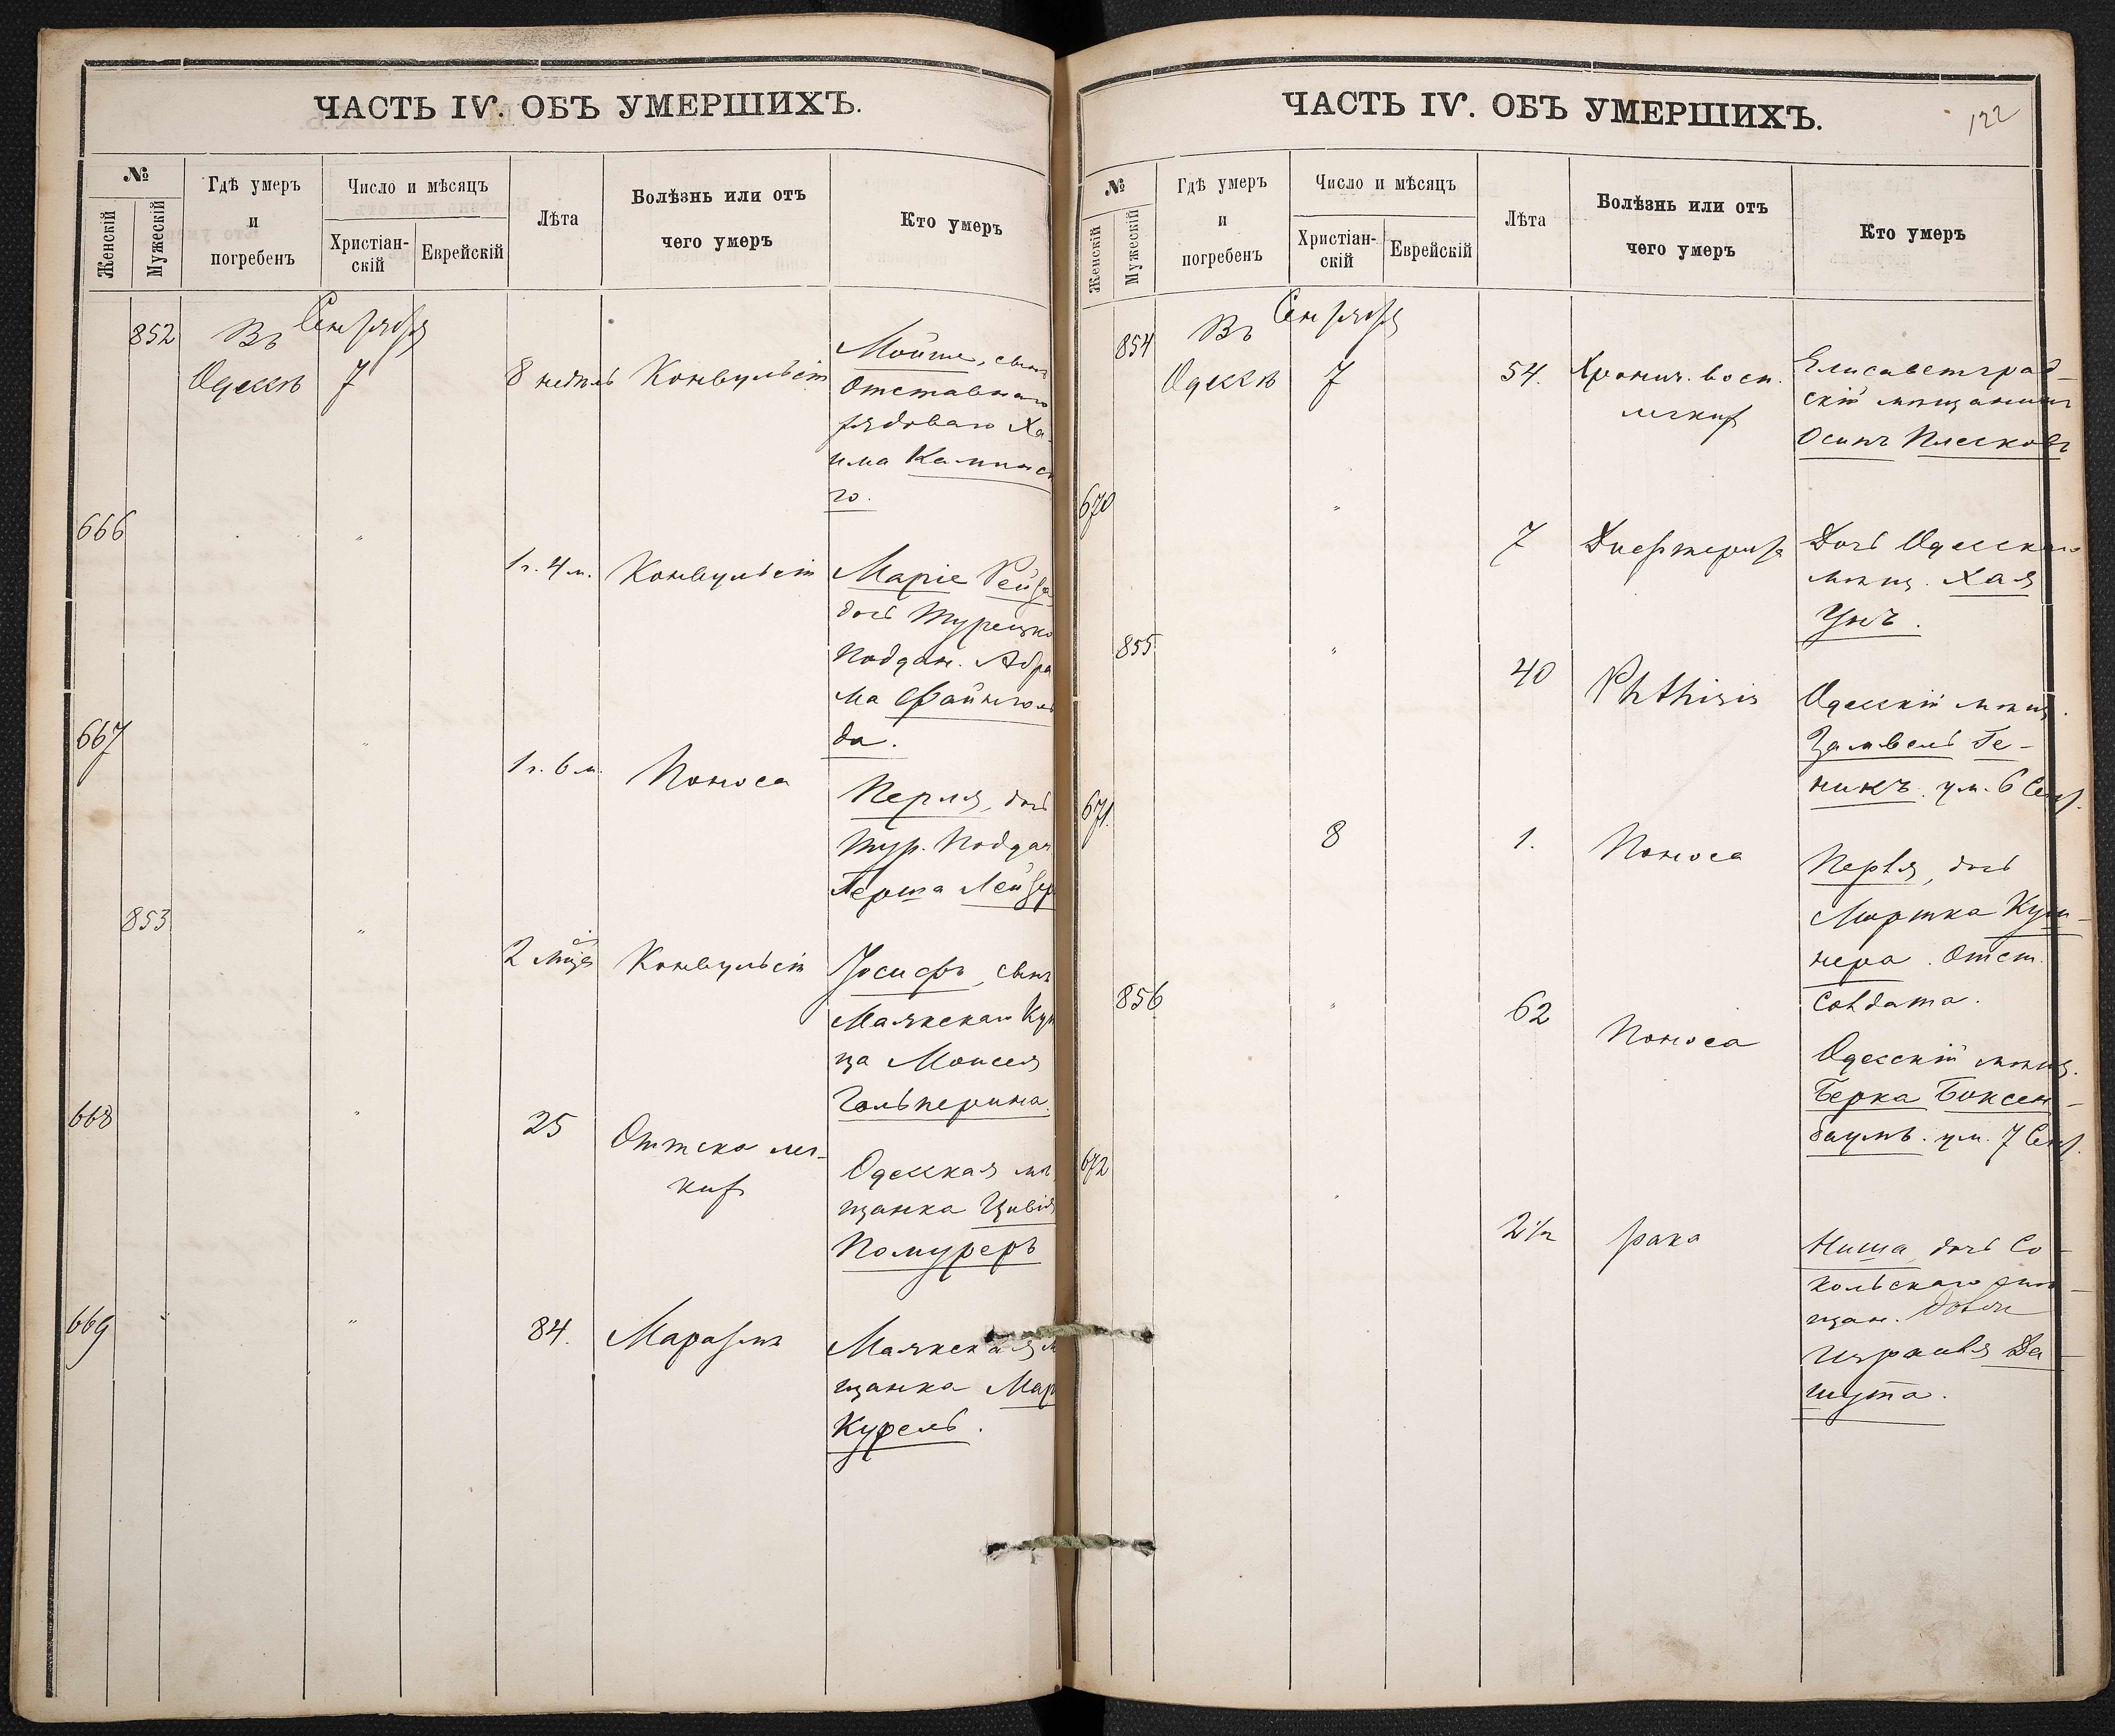 ЧАСТЬ IV. ОБЪ УМЕРШИХЪ.
№
Женскій
Мужескій
Гдѣ умеръ
и
погребенъ
Число и мѣсяцъ
Христіан-
скій
Еврейскій
Лѣта
Болѣзнь или отъ
чего умеръ
Кто умеръ
852
Въ
Сентября
Одессѣ
7
8 недѣль
Конвульсій
Мойше, сынъ
Отставнаго
рядоваго Ха-
има
го.
666
"
1 г. 4 м.
Конвульсій
Маріе Рейза
дочь Турецко
Поддан. Абра
ма Файнголь
да.
667
"
1 г. 6 м.
Поноса
Перля, дочь
Тур. Поддан
Герша Лейзер
853
"
2 мѣс.
Конвульсій
Іосифъ, сынъ
Маякскаго Куп
ца Моисея
Гальперина.
668
"
25
Оттека лег-
кихъ
Одесская мѣ
щанка Цивія
Помуреръ
669
"
84.
Маразмъ
Маякская м
щанка Мар
Курель.
ЧАСТЬ IV. ОБЪ УМЕРШИХЪ.
122
№
Женскій
Мужескій
Гдѣ умеръ
и
погребенъ
Число и мѣсяцъ
Христіан-
скій
Еврейскій
Лѣта
Болѣзнь или отъ
чего умеръ
Кто умеръ
854
Въ
Сентября
Одессѣ
7
54.
Хронич. восп.
легкихъ
Елисаветград-
скій мѣщанинъ
Осипъ Плесковъ
670
"
7
Дифтерита
Дочь Одесскаго
мѣщ. Хая
Унъ.
855
"
40
Phthisis
Одесскій мѣщ.
Залвель Ге-
никъ. ум. 6 Сент.
671.
8
1.
Поноса
Перля, дочь
Мортка Куш-
нера. Отст.
Солдата.
856
"
62
Поноса
Одесскій мѣщ.
Берка Боксен-
баумъ. ум. 7 Сент.
672
"
2 1/2
рака
Ниша дочь Со-
кольскаго
щан.
Израиля Да-
шута.